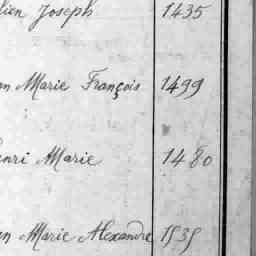 lien Joseph 1435
n Marie François 1499
enri Marie 1480
n Marie Alexandre 1535